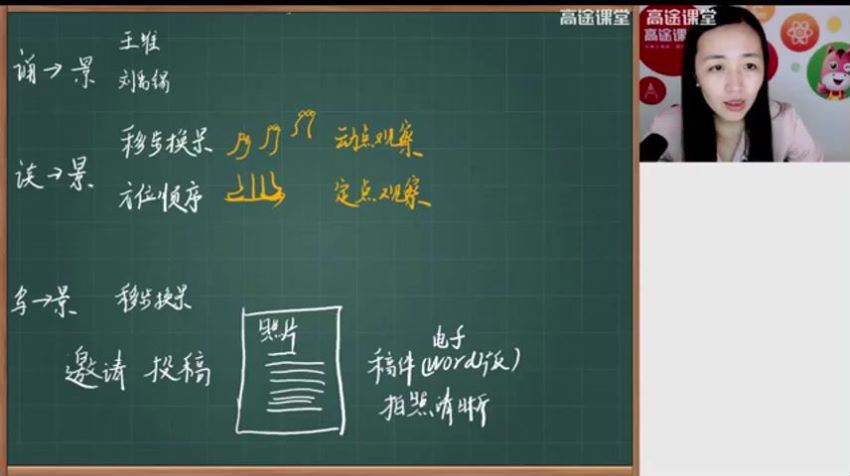 高途课堂
高途课堂
高途课
诵→景 王维
刘禹锡
读→景 移步换景 动点观察
方位顺序 定点观察
写→景 移步换景
邀请 投稿
照片
电子
稿件(word版)
拍照清晰